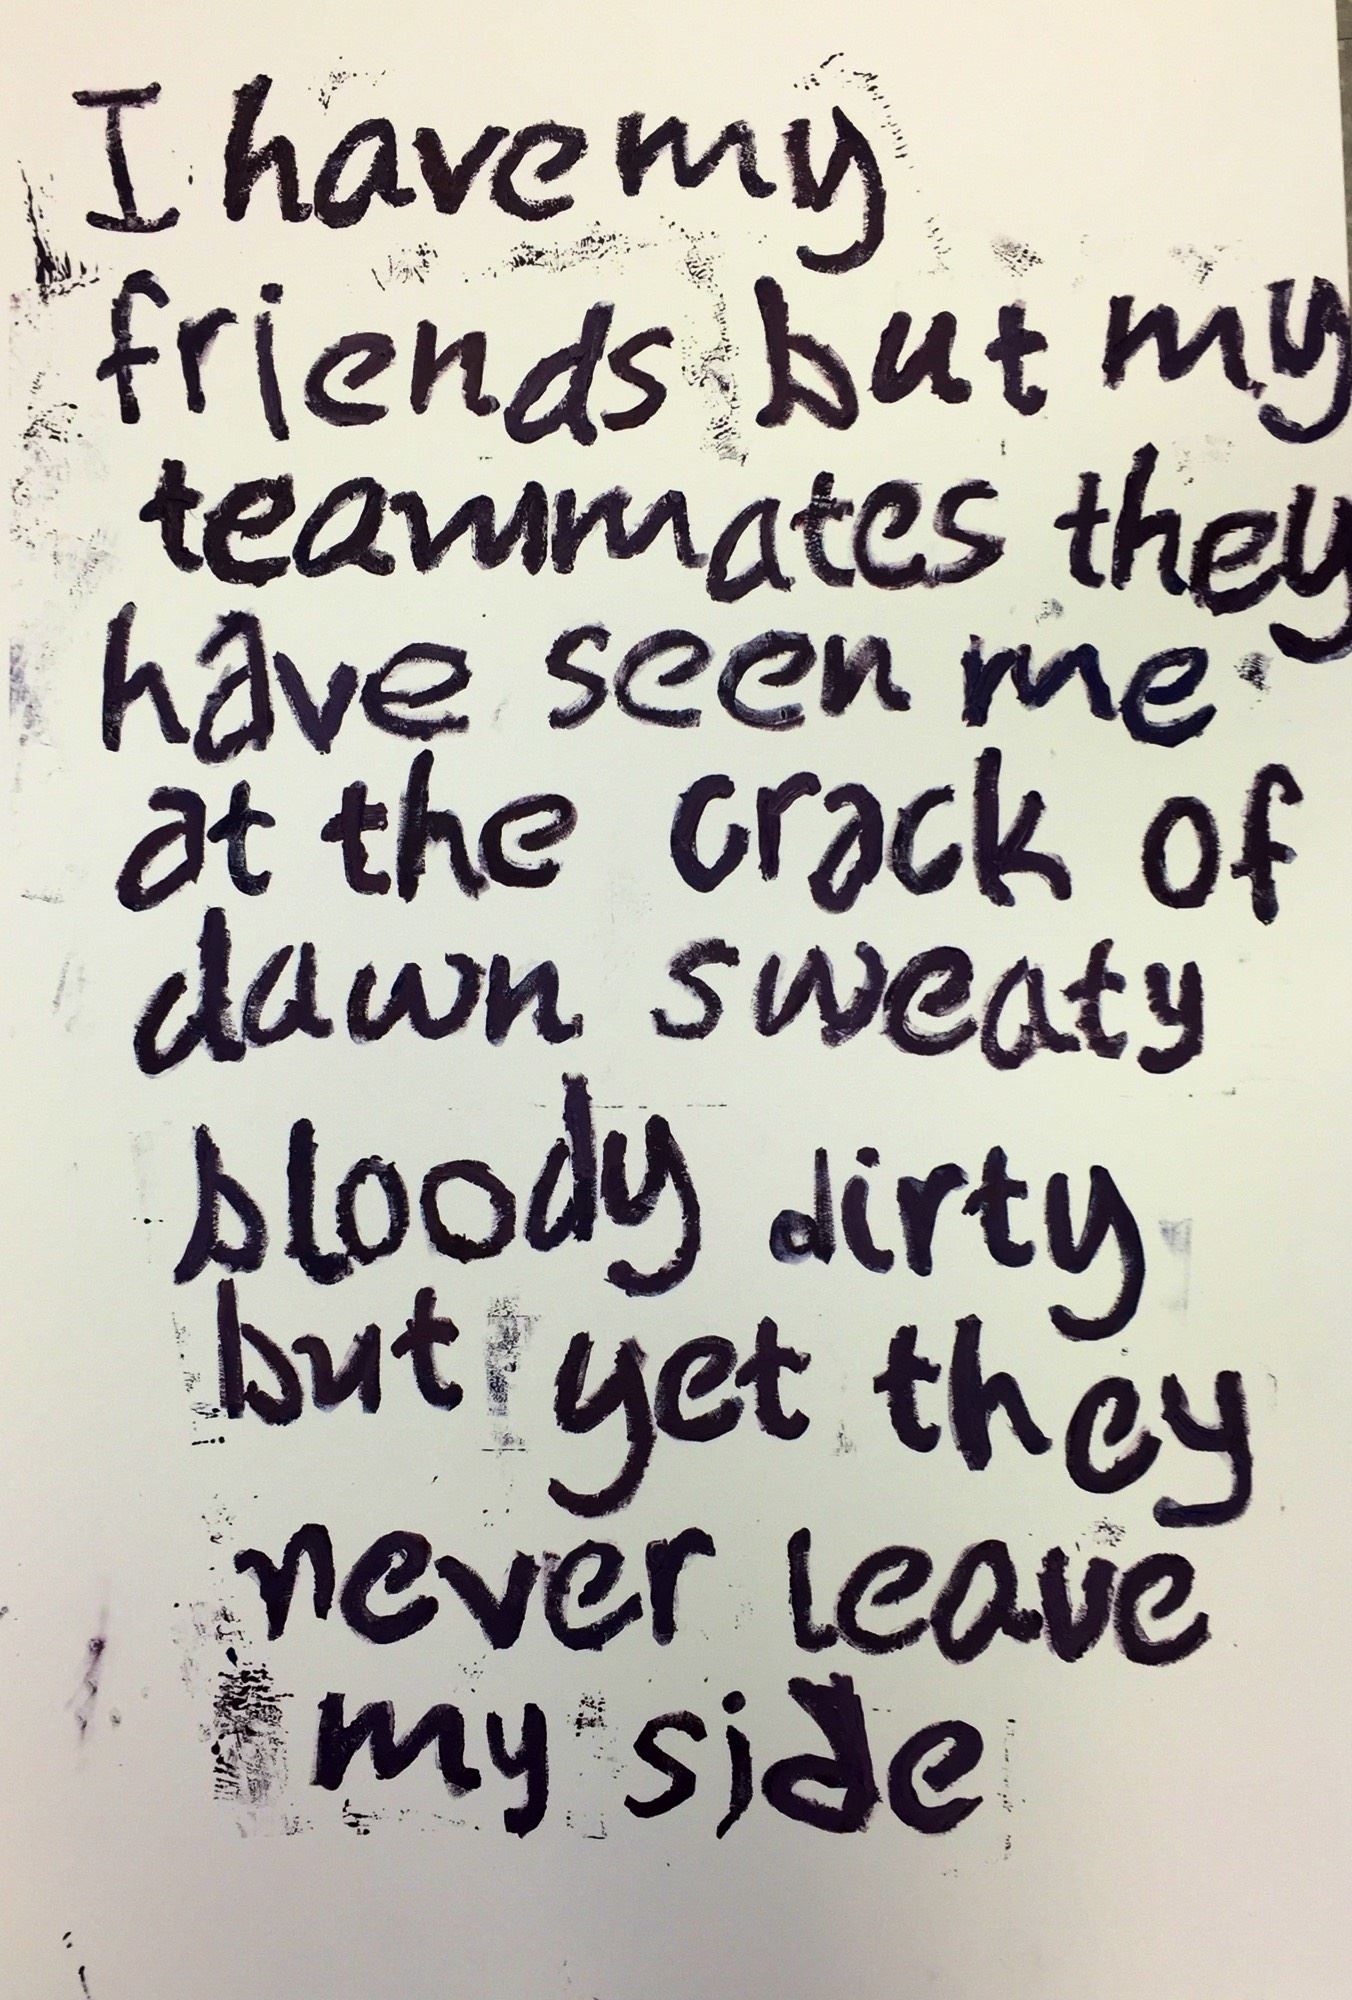 I have my
friends but my
teammates they
have seen me
at the crack of
dawn sweaty
bloody dirty
but yet they
never leave
my side